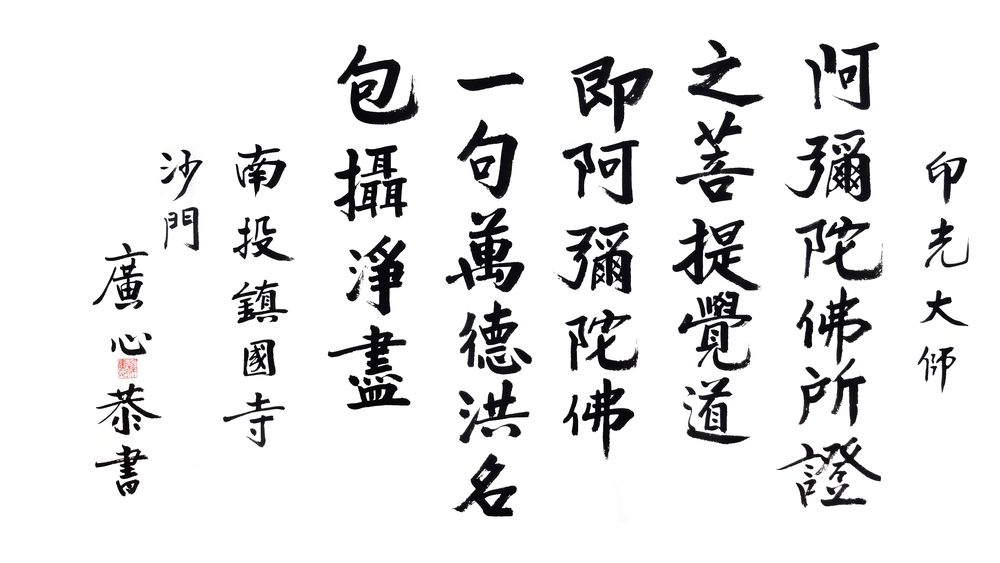 印光大師
阿彌陀佛所證
之菩提覺道
即阿彌陀佛
一句萬德洪名
包攝淨盡
南投鎮國寺
沙門
廣心恭書